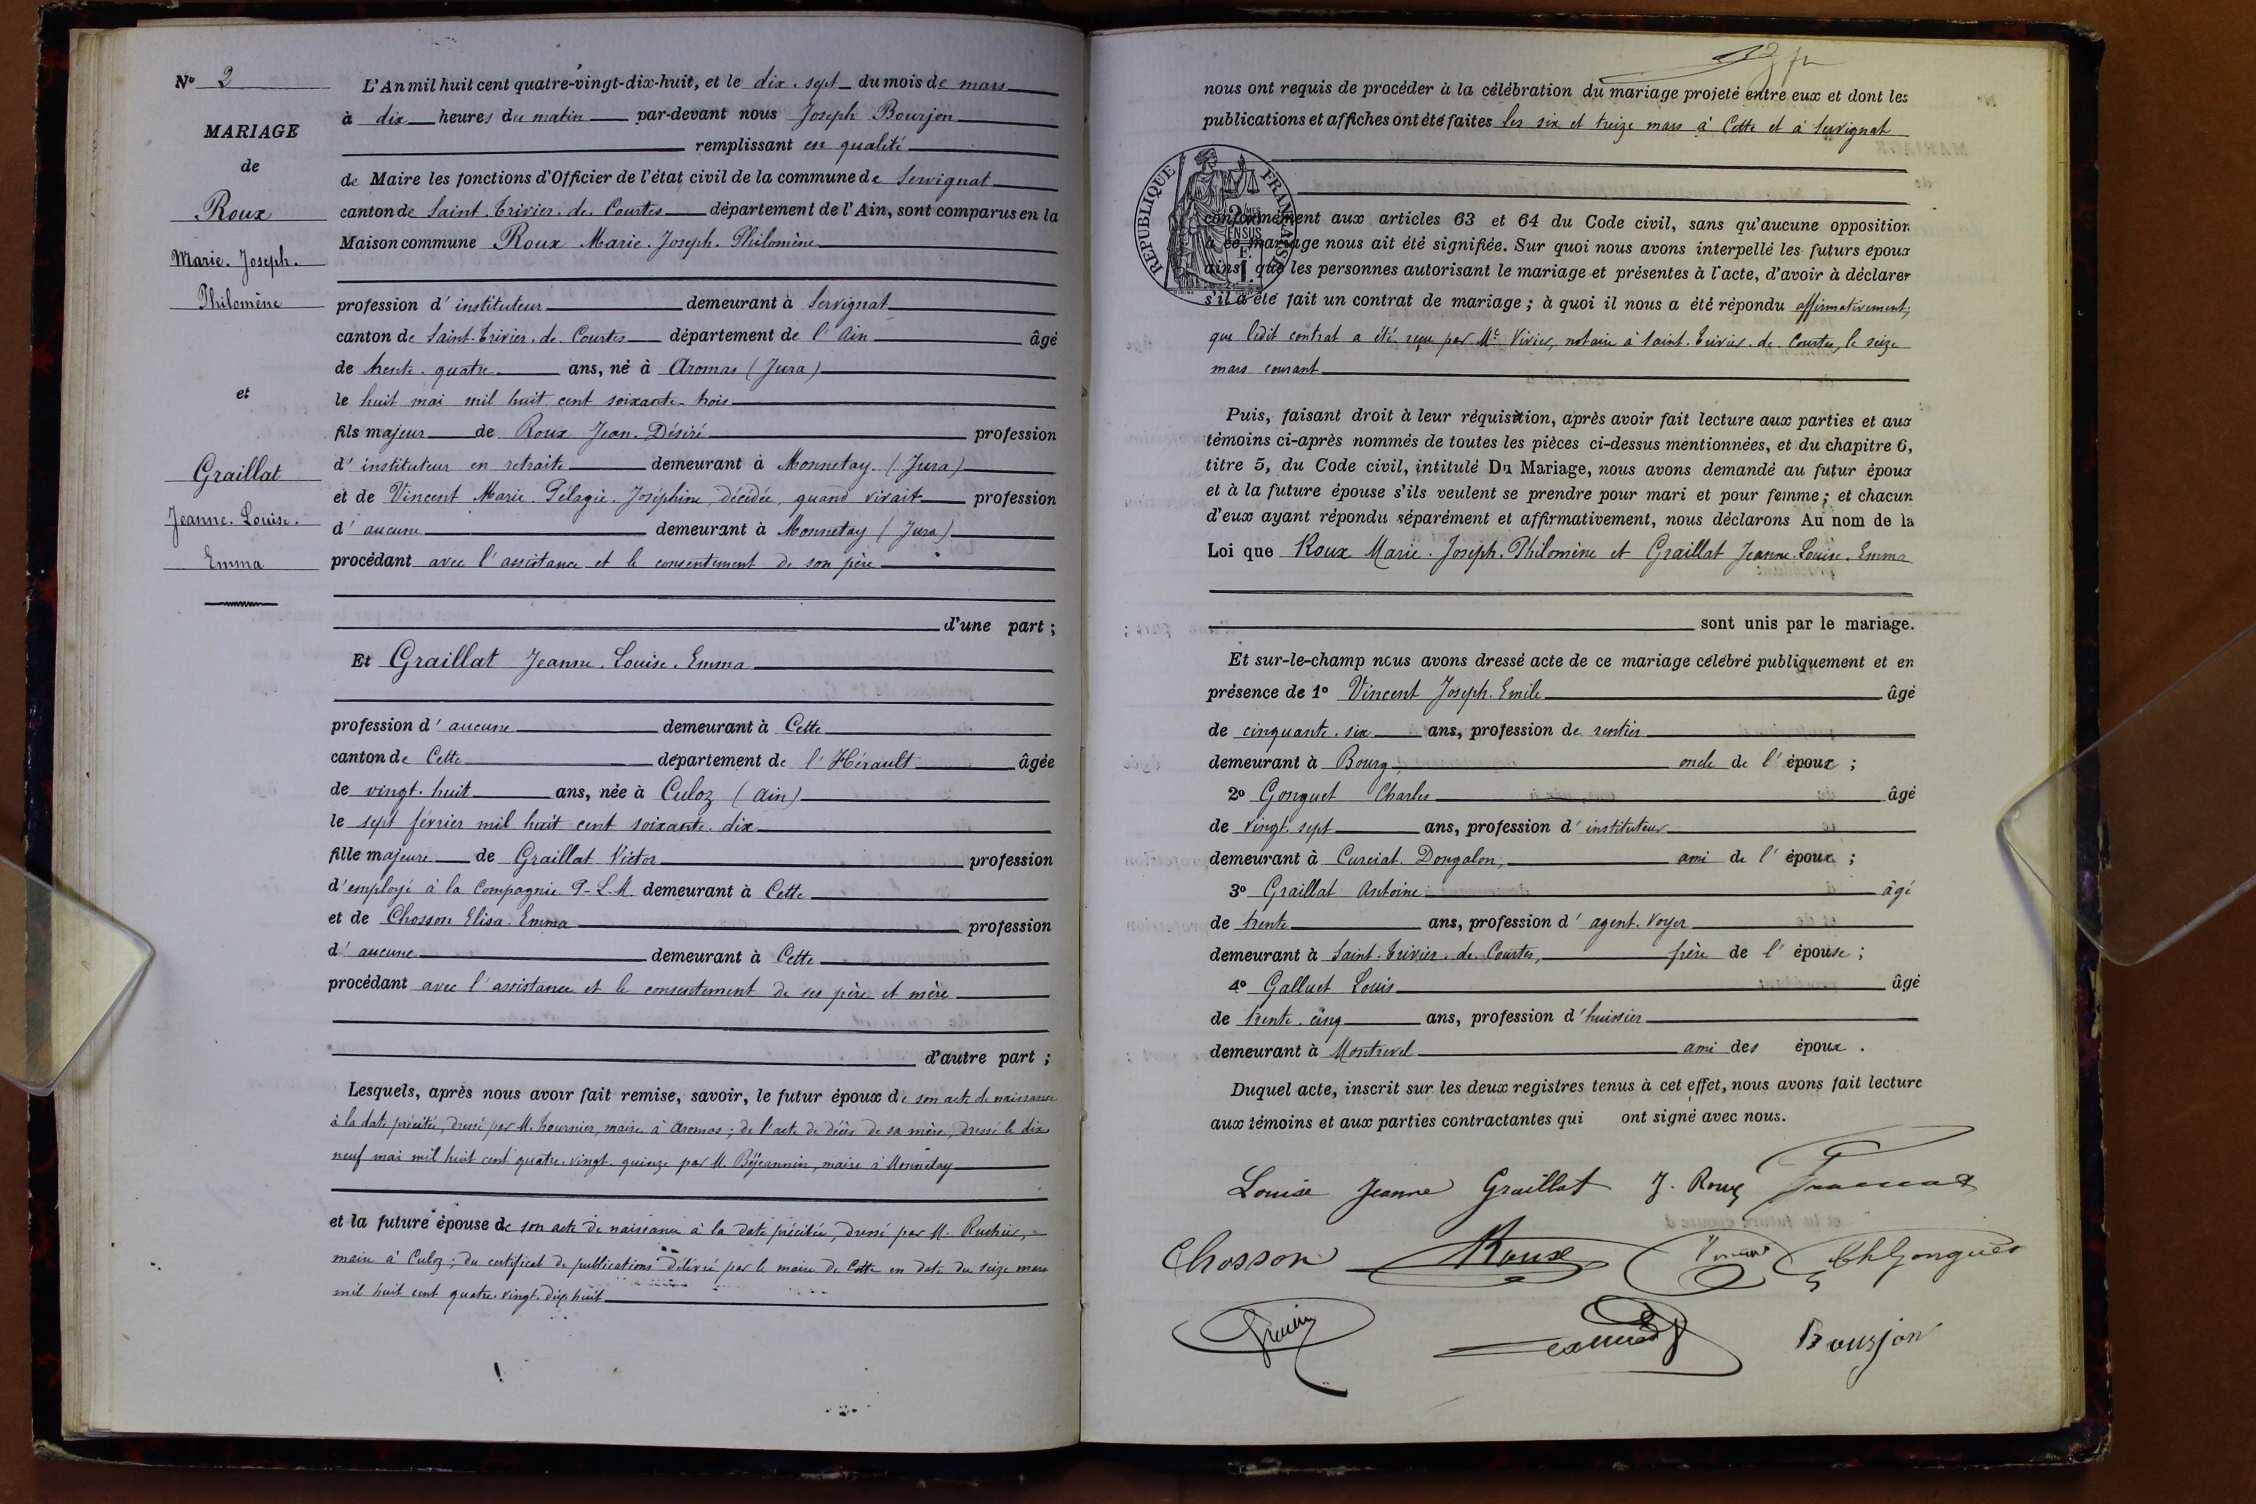 Nº 2
MARIAGE
de
Roux
Marie. Joseph.
Philomène
et
Graillat
Jeanne. Louise.
Emma
L'An mil huit cent quatre-vingt-dix-huit, et le dix. sept du mois de mars
à dix heures du matin par-devant nous Joseph Bourjon
remplissant en qualité
de Maire les fonctions d'Officier de l'état civil de la commune de Servignat
canton de Saint. Trivier. de. Courtes département de l'Ain, sont comparus en la
Maison commune Roux Marie. Joseph. Philomène
profession d'instituteur demeurant à Servignat
canton de Saint. Trivier. de. Courtes département de l'Ain âgé
de trente. quatre ans, né à Aromas (Jura)
le huit mai mil huit cent soixante. trois
fils majeur de Roux Jean. Désiré profession
d'instituteur en retraite demeurant à Monnetay (Jura)
et de Vincent Marie. Pélagie. Joséphine, décédée, quand vivait profession
d'aucune demeurant à Monnetay (Jura)
procédant avec l'assistance et le consentement de son père
d'une part ;
Et Graillat Jeanne. Louise. Emma
profession d'aucune demeurant à Cette
canton de Cette département de l'Hérault âgée
de vingt. huit ans, née à Culoz (Ain)
le sept février mil huit cent soixante. dix
fille majeure de Graillat Victor profession
d'employé à la Compagnie P-L-M. demeurant à Cette
et de Chosson Elisa. Emma profession
d'aucune demeurant à Cette
procédant avec l'assistance et le consentement de ses père et mère
d'autre part ;
Lesquels, après nous avoir fait remise, savoir, le futur époux de son acte de naissance
à la date précitée, dressé par M. Fournier, maire à Aromas ; de l'acte de décès de sa mère, dressé le dix
neuf mai mil huit cent quatre. vingt. quinze par M. Béjeannin, maire à Monnetay
et la future épouse de son acte de naissance à la date précitée, dressé par M.
maire à Culoz ; du certificat de publications délivré par le maire de Cette en date du seize mars
mil huit cent quatre. vingt. dix. huit
nous ont requis de procéder à la célébration du mariage projeté entre eux et dont les
publications et affiches ont été faites les six et treize mars à Cette et à Servignat
RÉPUBLIQUE FRANÇAISE
conformément aux articles 63 et 64 du Code civil, sans qu'aucune opposition
à ce mariage nous ait été signifiée. Sur quoi nous avons interpellé les futurs époux
ainsi que les personnes autorisant le mariage et présentes à l'acte, d'avoir à déclarer
s'il a été fait un contrat de mariage ; à quoi il nous a été répondu affirmativement,
que ledit contrat a été reçu par Me Vivier, notaire à Saint. Trivier. de. Courtes, le seize
mars courant
Puis, faisant droit à leur réquisition, après avoir fait lecture aux parties et aux
témoins ci-après nommés de toutes les pièces ci-dessus mentionnées, et du chapitre 6,
titre 5, du Code civil, intitulé Du Mariage, nous avons demandé au futur époux
et à la future épouse s'ils veulent se prendre pour mari et pour femme ; et chacun
d'eux ayant répondu séparément et affirmativement, nous déclarons Au nom de la
Loi que Roux Marie. Joseph. Philomène et Graillat Jeanne. Louise. Emma
sont unis par le mariage.
Et sur-le-champ nous avons dressé acte de ce mariage célébré publiquement et en
présence de 1º Vincent Joseph. Emile âgé
de cinquante. six ans, profession de rentier
demeurant à Bourg oncle de l'époux ;
2º Gonguet Charles âgé
de vingt. sept ans, profession d'instituteur
demeurant à Curciat. Dongalon, ami de l'époux ;
3º Graillat Antoine âgé
de trente ans, profession d'agent. voyer
demeurant à Saint. Trivier. de. Courtes, frère de l'épouse ;
4º Galluet Louis âgé
de trente. cinq ans, profession d'huissier
demeurant à Montrevel ami des époux.
Duquel acte, inscrit sur les deux registres tenus à cet effet, nous avons fait lecture
aux témoins et aux parties contractantes qui ont signé avec nous.
Louise Jeanne Graillat J. Roux
Chosson Roux Vincent Ch Gonguet
Bourjon